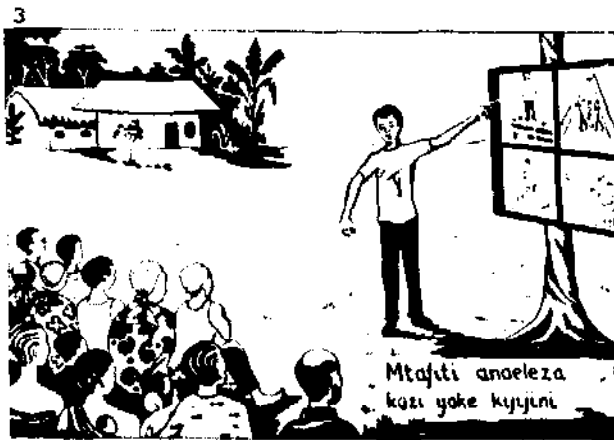 3
Mtafiti anaeleza
kazi yake kijijini